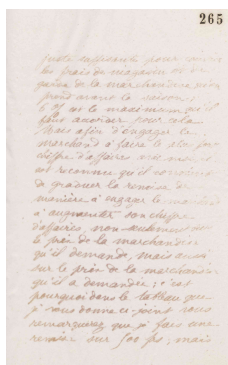 265
juste suffisante pour couvrir
les frais de magasin et
de la marchandise
avant la saison
est le maximum qu'il
faut accorder pour cela
Mais afin d'engager le
marchand à faire le plus fort
chiffre d'affaires
est reconnu qu'il convient
de graduer la remise de
manière à engager le marchand
à augmenter son chiffre
d'affaires, non seulement sur
le prix de la marchandise
qu'il demande, mais aussi
sur le prix de la marchandise
qu'il a demandée; c'est
pourquoi dans le tableau que
je vous donne ci-joint vous
remarquerez que je fais une
remise sur 500 ps, mais